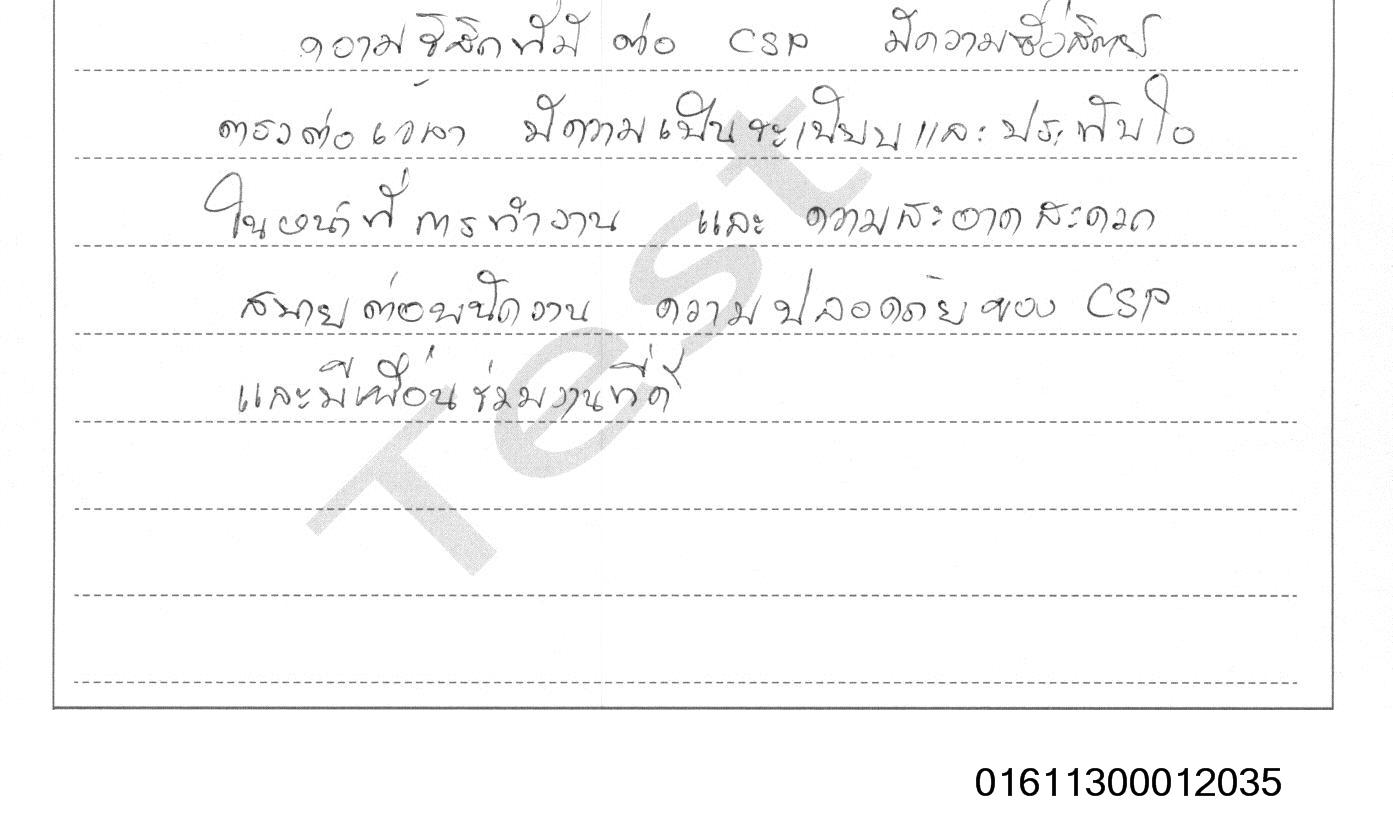 ความรู้สึกที่มี ต่อ CSP มีความซื่อสัตย์
ตรงต่อเวลา มีความเป็นระเบียบและประทับใจ
ในหน้าที่การทำงาน และ ความสะอาดสะดวก
สบายต่อพนักงาน ความปลอดภัยของ CSP
และมีเพื่อนร่วมงานที่ดี
Test
01611300012035